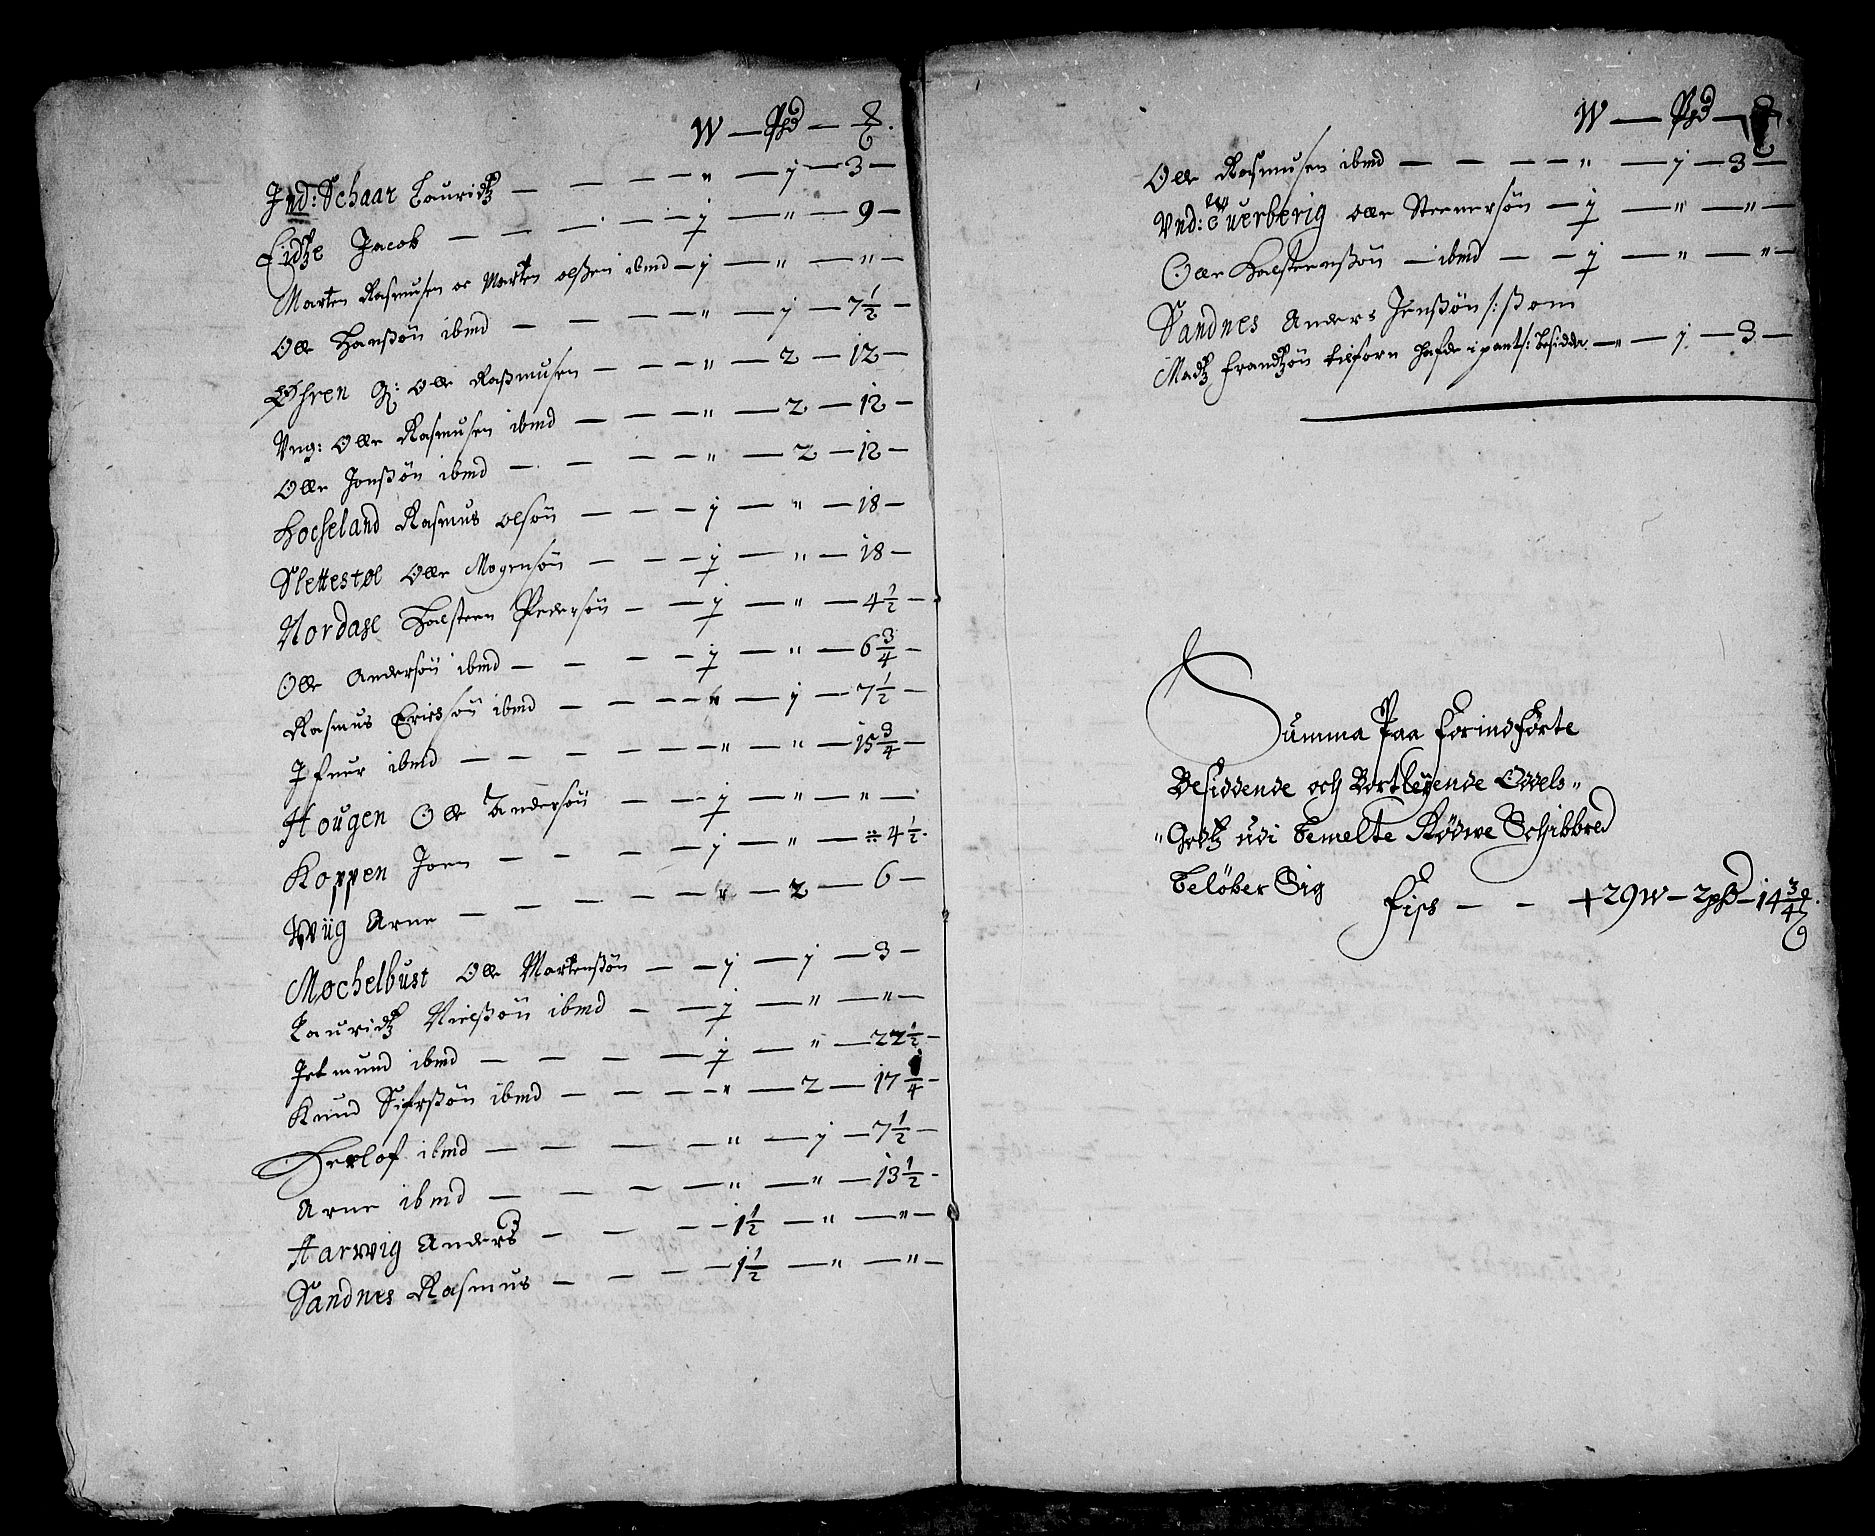 W — Pd — ℔.
Ind: Schaar Lauridtz — — — — " — j — 3 —
Eidtze Jacob — — — — — j — " — 9 —
Marten Rasmusen oc Marten olßen ibmd — j — " — " —
Olle Hanßøn ibmd — — — — " — j — 7½ —
Øhren G: Olle Raßmusen — — — " — 2 — 12 —
Vng: Olle Rasmusen ibmd — — — " — 2 — 12 —
Olle Jonßøn ibmd — — — — " — 2 — 12 —
Hocheland Rasmus olsøn — — — j — " — 18 —
Slettestøl Olle Mogensøn — — — j — " — 18 —
Nordase Halsteen Pedersøn — — j — " — 4½ —
Olle Andersøn ibmd — — — — j — " — 6¾ —
Rasmus Erichsøn ibmd — — — — " — j — 7½ —
Ifuer ibmd — — — — — " — " — 15¾ —
Hougen Olle Andersøn — — — j — " — " —
Koppen Joen — — — — j — " — 4½.
Wiig Arne — — — — — " — 2 — 6 —
Møchelbust Olle Martenßøn — — j — j — 3 —
Lauridtz Nielßøn ibmd — — j — " — " —
Jetmund ibmd — — — — j — " — 22½ —
Knud Sifrßøn ibmd — — — — " — 2 — 17¼ —
Herlof ibmd — — — — " — j — 7½ —
Arne ibmd — — — — " — " — 13½ —
Aarwig Anders — — — 1½ — " — " —
Sandnes Rasmus — — — 1½ — " — " —
W — Pd — ℔.
Olle Rasmusen ibmd — — — — " — j — 3 —
Vnd: Tuerberig Olle Steenersøn — j — " — " —
Olle Halsteenßøn — ibmd — — j — " — " —
Sandnes Anders Jenßøn /: ßom
Madtz Frandtzøn tilforn hafde i pant :/ besidder — " — j — 3 —
Summa Paa Forindførte
Besiddende och Bortleyende Oddels"
"Godtz udi bemelte Rødwe Schibbred
beløber Sig
Fisk — — + 29W — 2pd — 14¾ ℔.